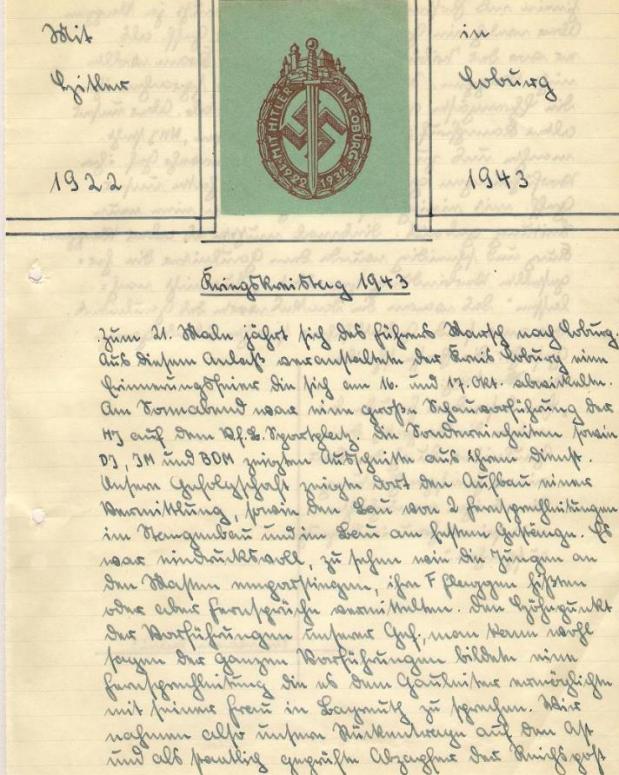 Mit
Hitler
1922
MIT HITLER IN COBURG
1922 1932
in
Coburg
1943
Kriegskreistag 1943
Zum 21. Male jährt sich des Führers Marsch nach Coburg.
Aus diesem Anlaß veranstaltete der Kreis Coburg eine
Erinnerungsfeier die sich am 16. und 17. Okt. abwickelte.
Am Sonnabend war eine große Schauvorführung der
HJ auf dem V.f.L. Sportplatz. Die Sondereinheiten sowie
DJ, JM und BDM zeigten Ausschnitte aus Ihrem Dienst.
Unsere Gefolgschaft zeigte dort den Aufbau einer
Vermittlung, sowie den Bau von 2 Fernsprechleitungen
im Stangenbau und im Bau am festem Gestänge. Es
war eindrucksvoll, zu sehen wie die Jungen an
den Masten emporstiegen, ihre F Flaggen hißten
oder aber Fernsprüche vermittelten. Den Höhepunkt
der Vorführungen unserer Gef., man kann wohl
sagen der ganzen Vorführungen bildete eine
Fernsprechleitung die es dem Gauleiter ermöglichte
mit seiner Frau in Bayreuth zu sprechen. Wir
nahmen also unsere Rückentrage auf den Ast
und als staatlich geprüfte Abzapfer der Reichspost